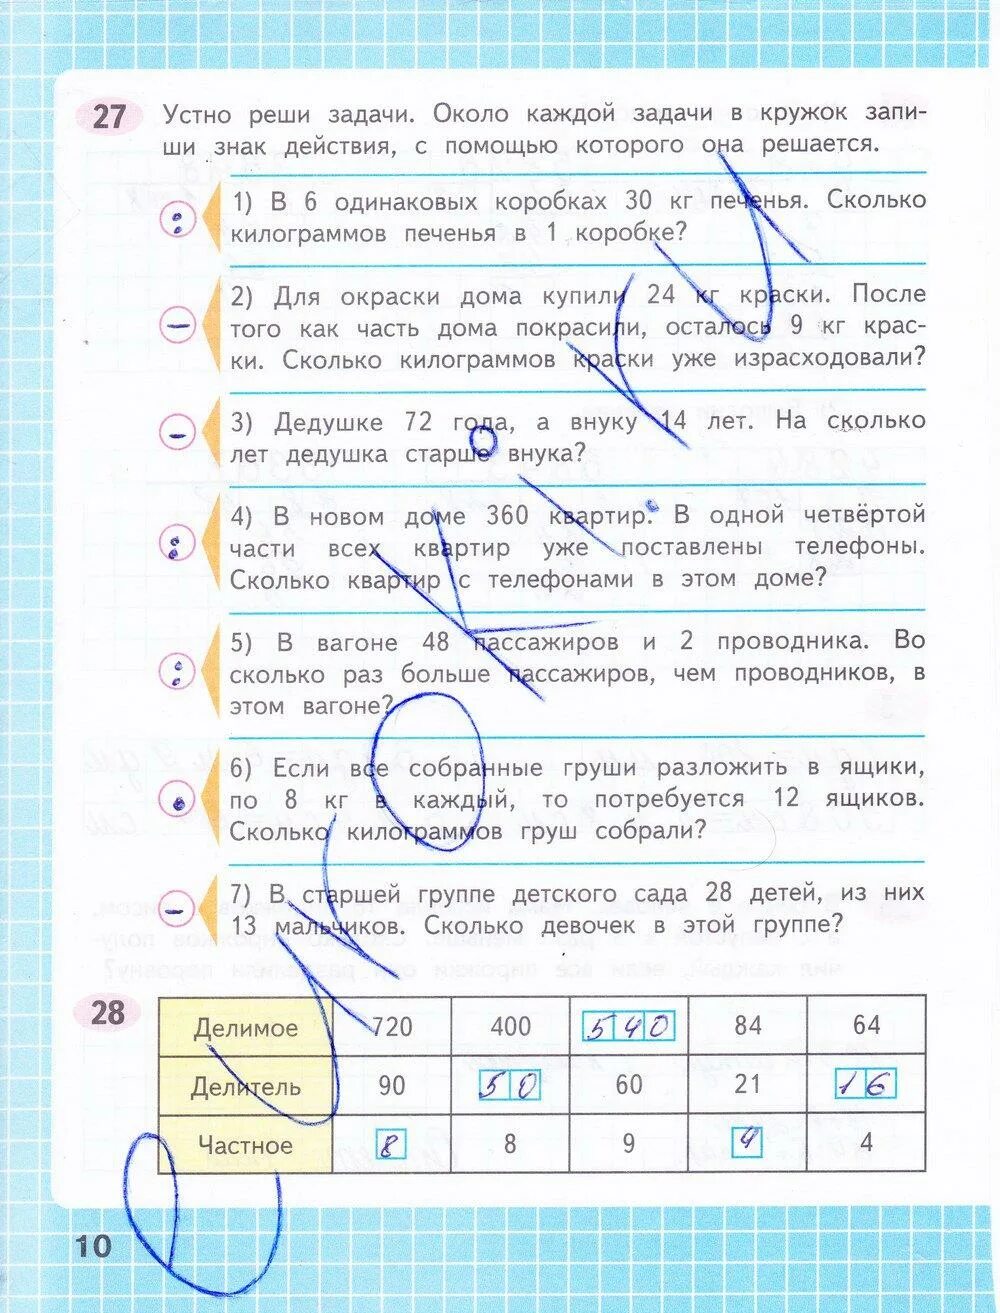 27 Устно реши задачи. Около каждой задачи в кружок запи-
ши знак действия, с помощью которого она решается.
: 1) В 6 одинаковых коробках 30 кг печенья. Сколько
килограммов печенья в 1 коробке?
− 2) Для окраски дома купили 24 кг краски. После
того как часть дома покрасили, осталось 9 кг крас-
ки. Сколько килограммов краски уже израсходовали?
− 3) Дедушке 72 года, а внуку 14 лет. На сколько
лет дедушка старше внука?
: 4) В новом доме 360 квартир. В одной четвёртой
части всех квартир уже поставлены телефоны.
Сколько квартир с телефонами в этом доме?
: 5) В вагоне 48 пассажиров и 2 проводника. Во
сколько раз больше пассажиров, чем проводников, в
этом вагоне?
· 6) Если все собранные груши разложить в ящики,
по 8 кг в каждый, то потребуется 12 ящиков.
Сколько килограммов груш собрали?
− 7) В старшей группе детского сада 28 детей, из них
13 мальчиков. Сколько девочек в этой группе?
28 Делимое 720 400 540 84 64
Делитель 90 50 60 21 16
Частное 8 8 9 4 4
10